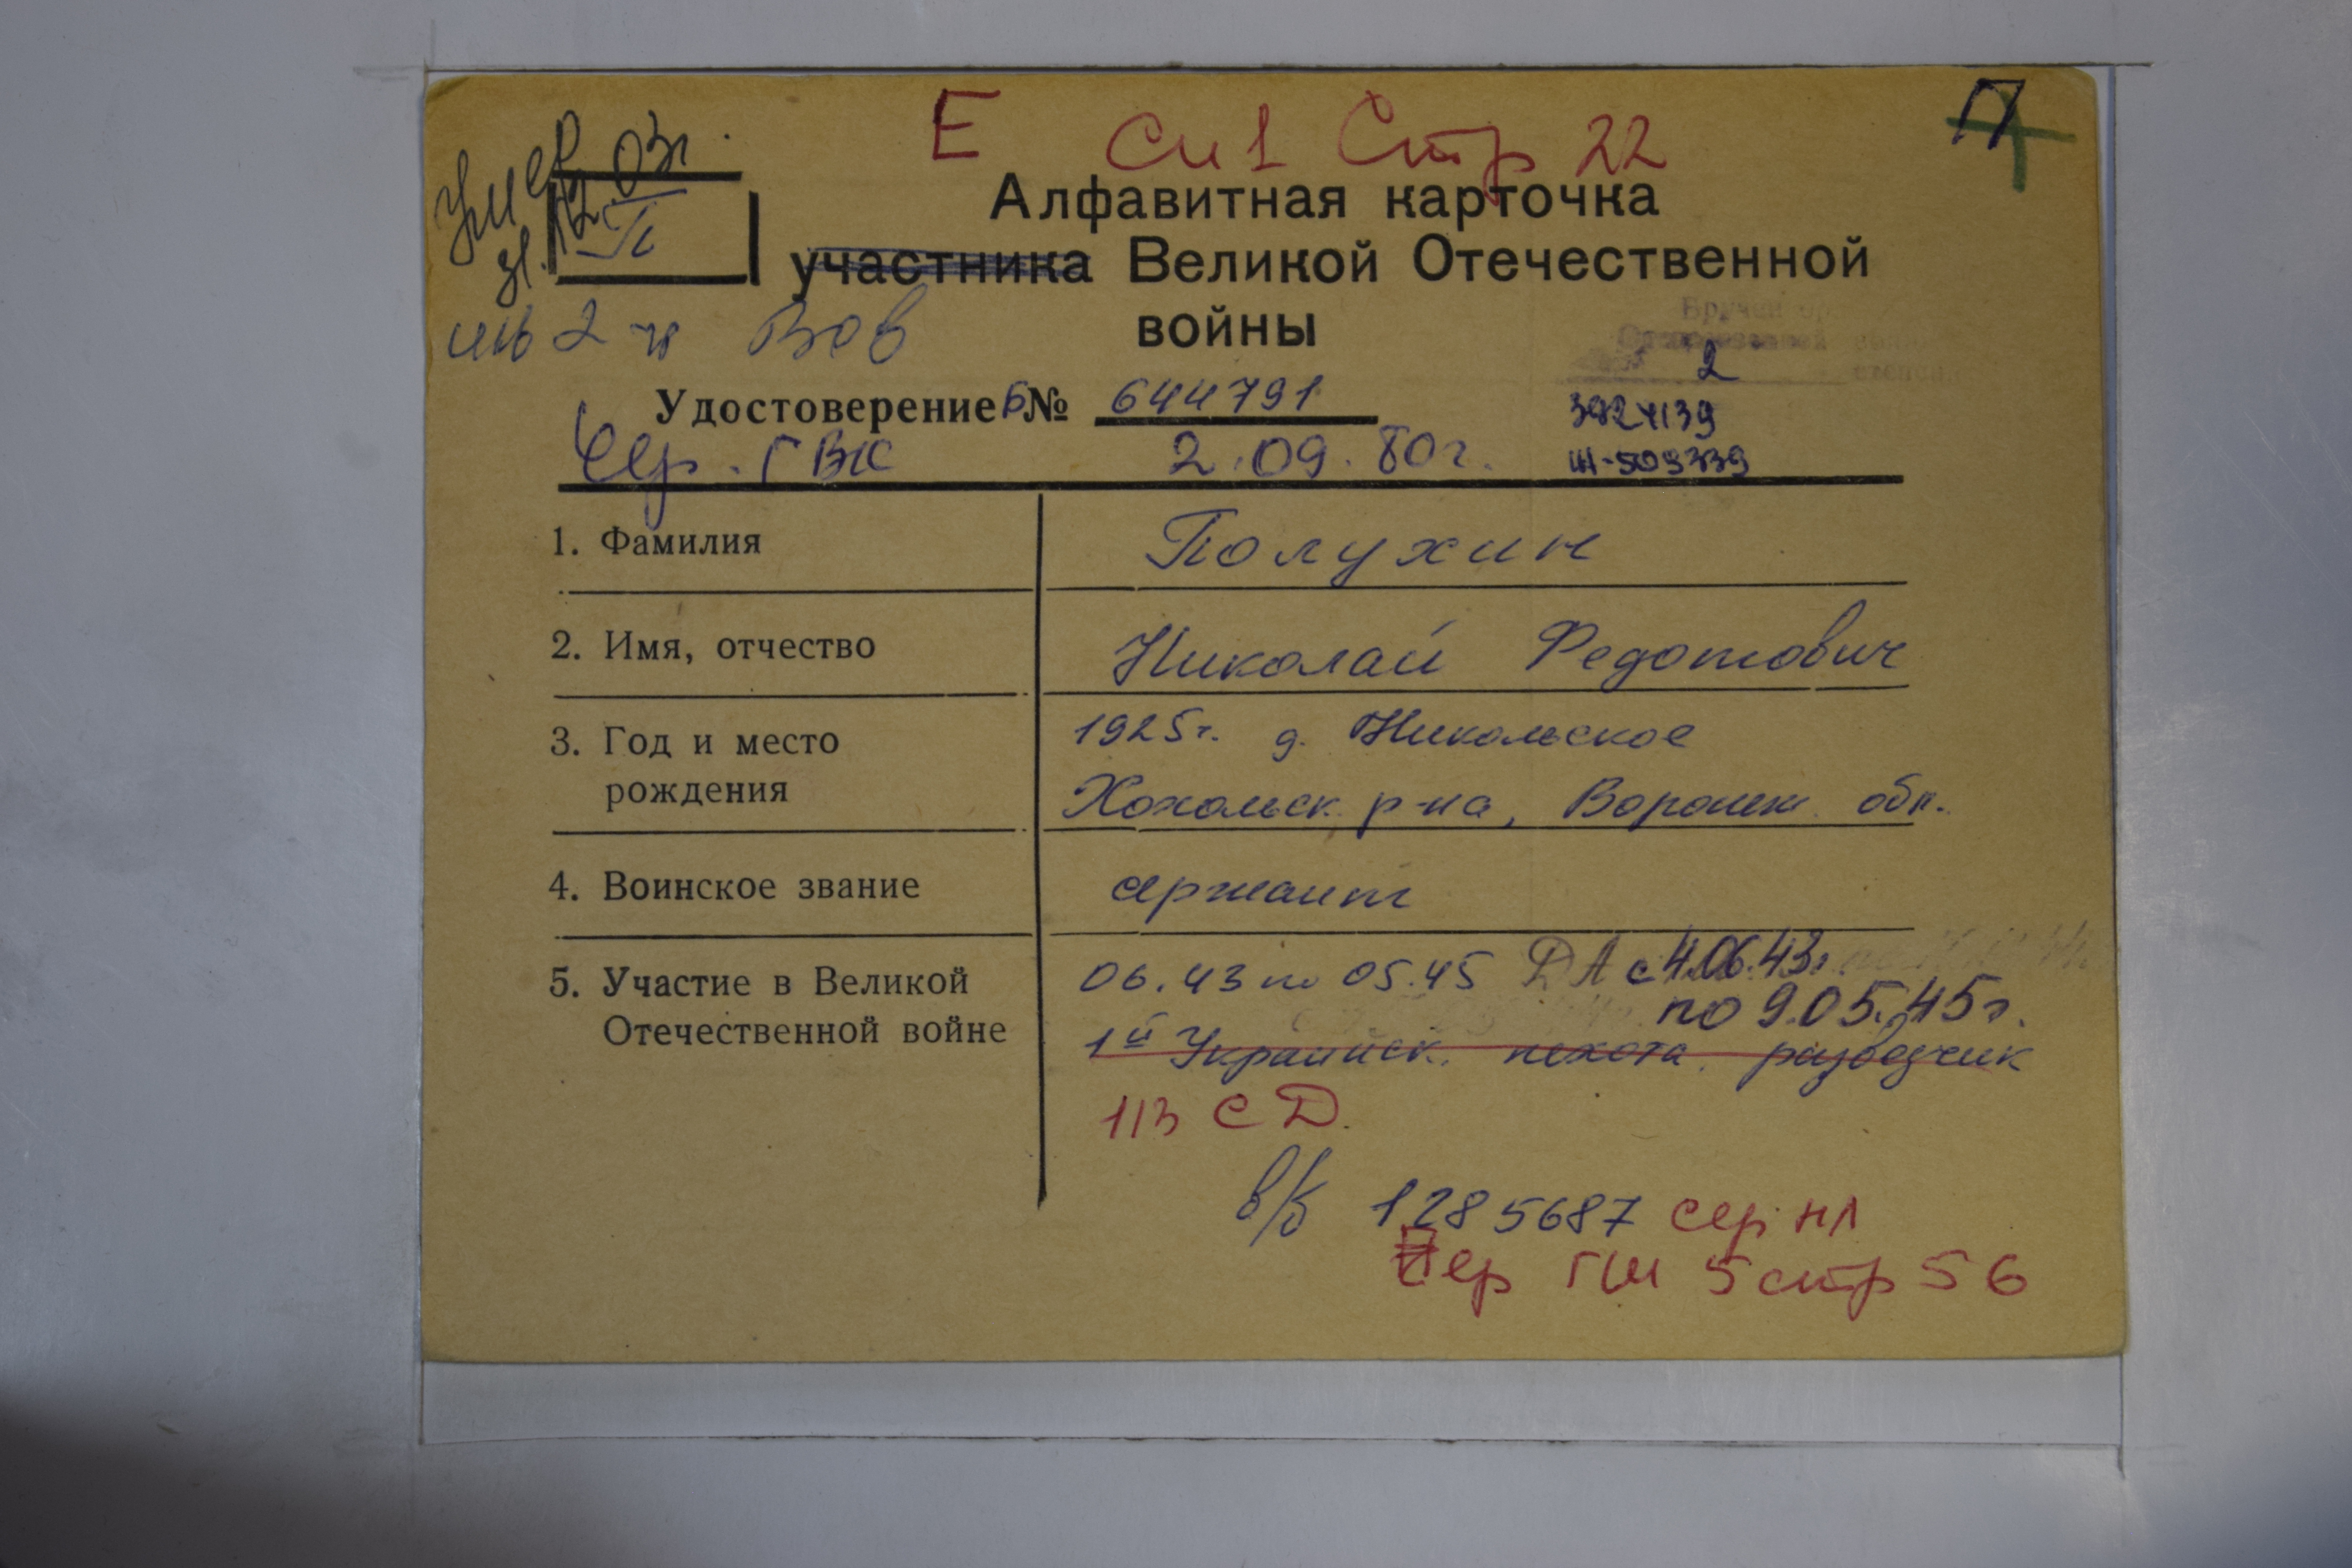 Е Сп 1 Стр 22
П
Умер
31.12.03г.
П
Алфавитная карточка
участника Великой Отечественной
войны
инв 2 гр ВОв
Вручен
Отечественной
степени
2
3924139
Удостоверение Б № 644791
Сер. ГВК 2.09.80г.
1. Фамилия Полухин
2. Имя, отчество Николай Федотович
3. Год и место 1925г. д. Никольское
рождения Хохольск. р-на, Воронеж. обл.
4. Воинское звание сержант
5. Участие в Великой 06.43 по 05.45 ДА с 4.06.43г.
по 9.05.45г.
Отечественной войне 1й Украинск. пехота, разведчик
113 СД.
в/б 1285687 сер НЛ
Сер ГШ 5 стр 56